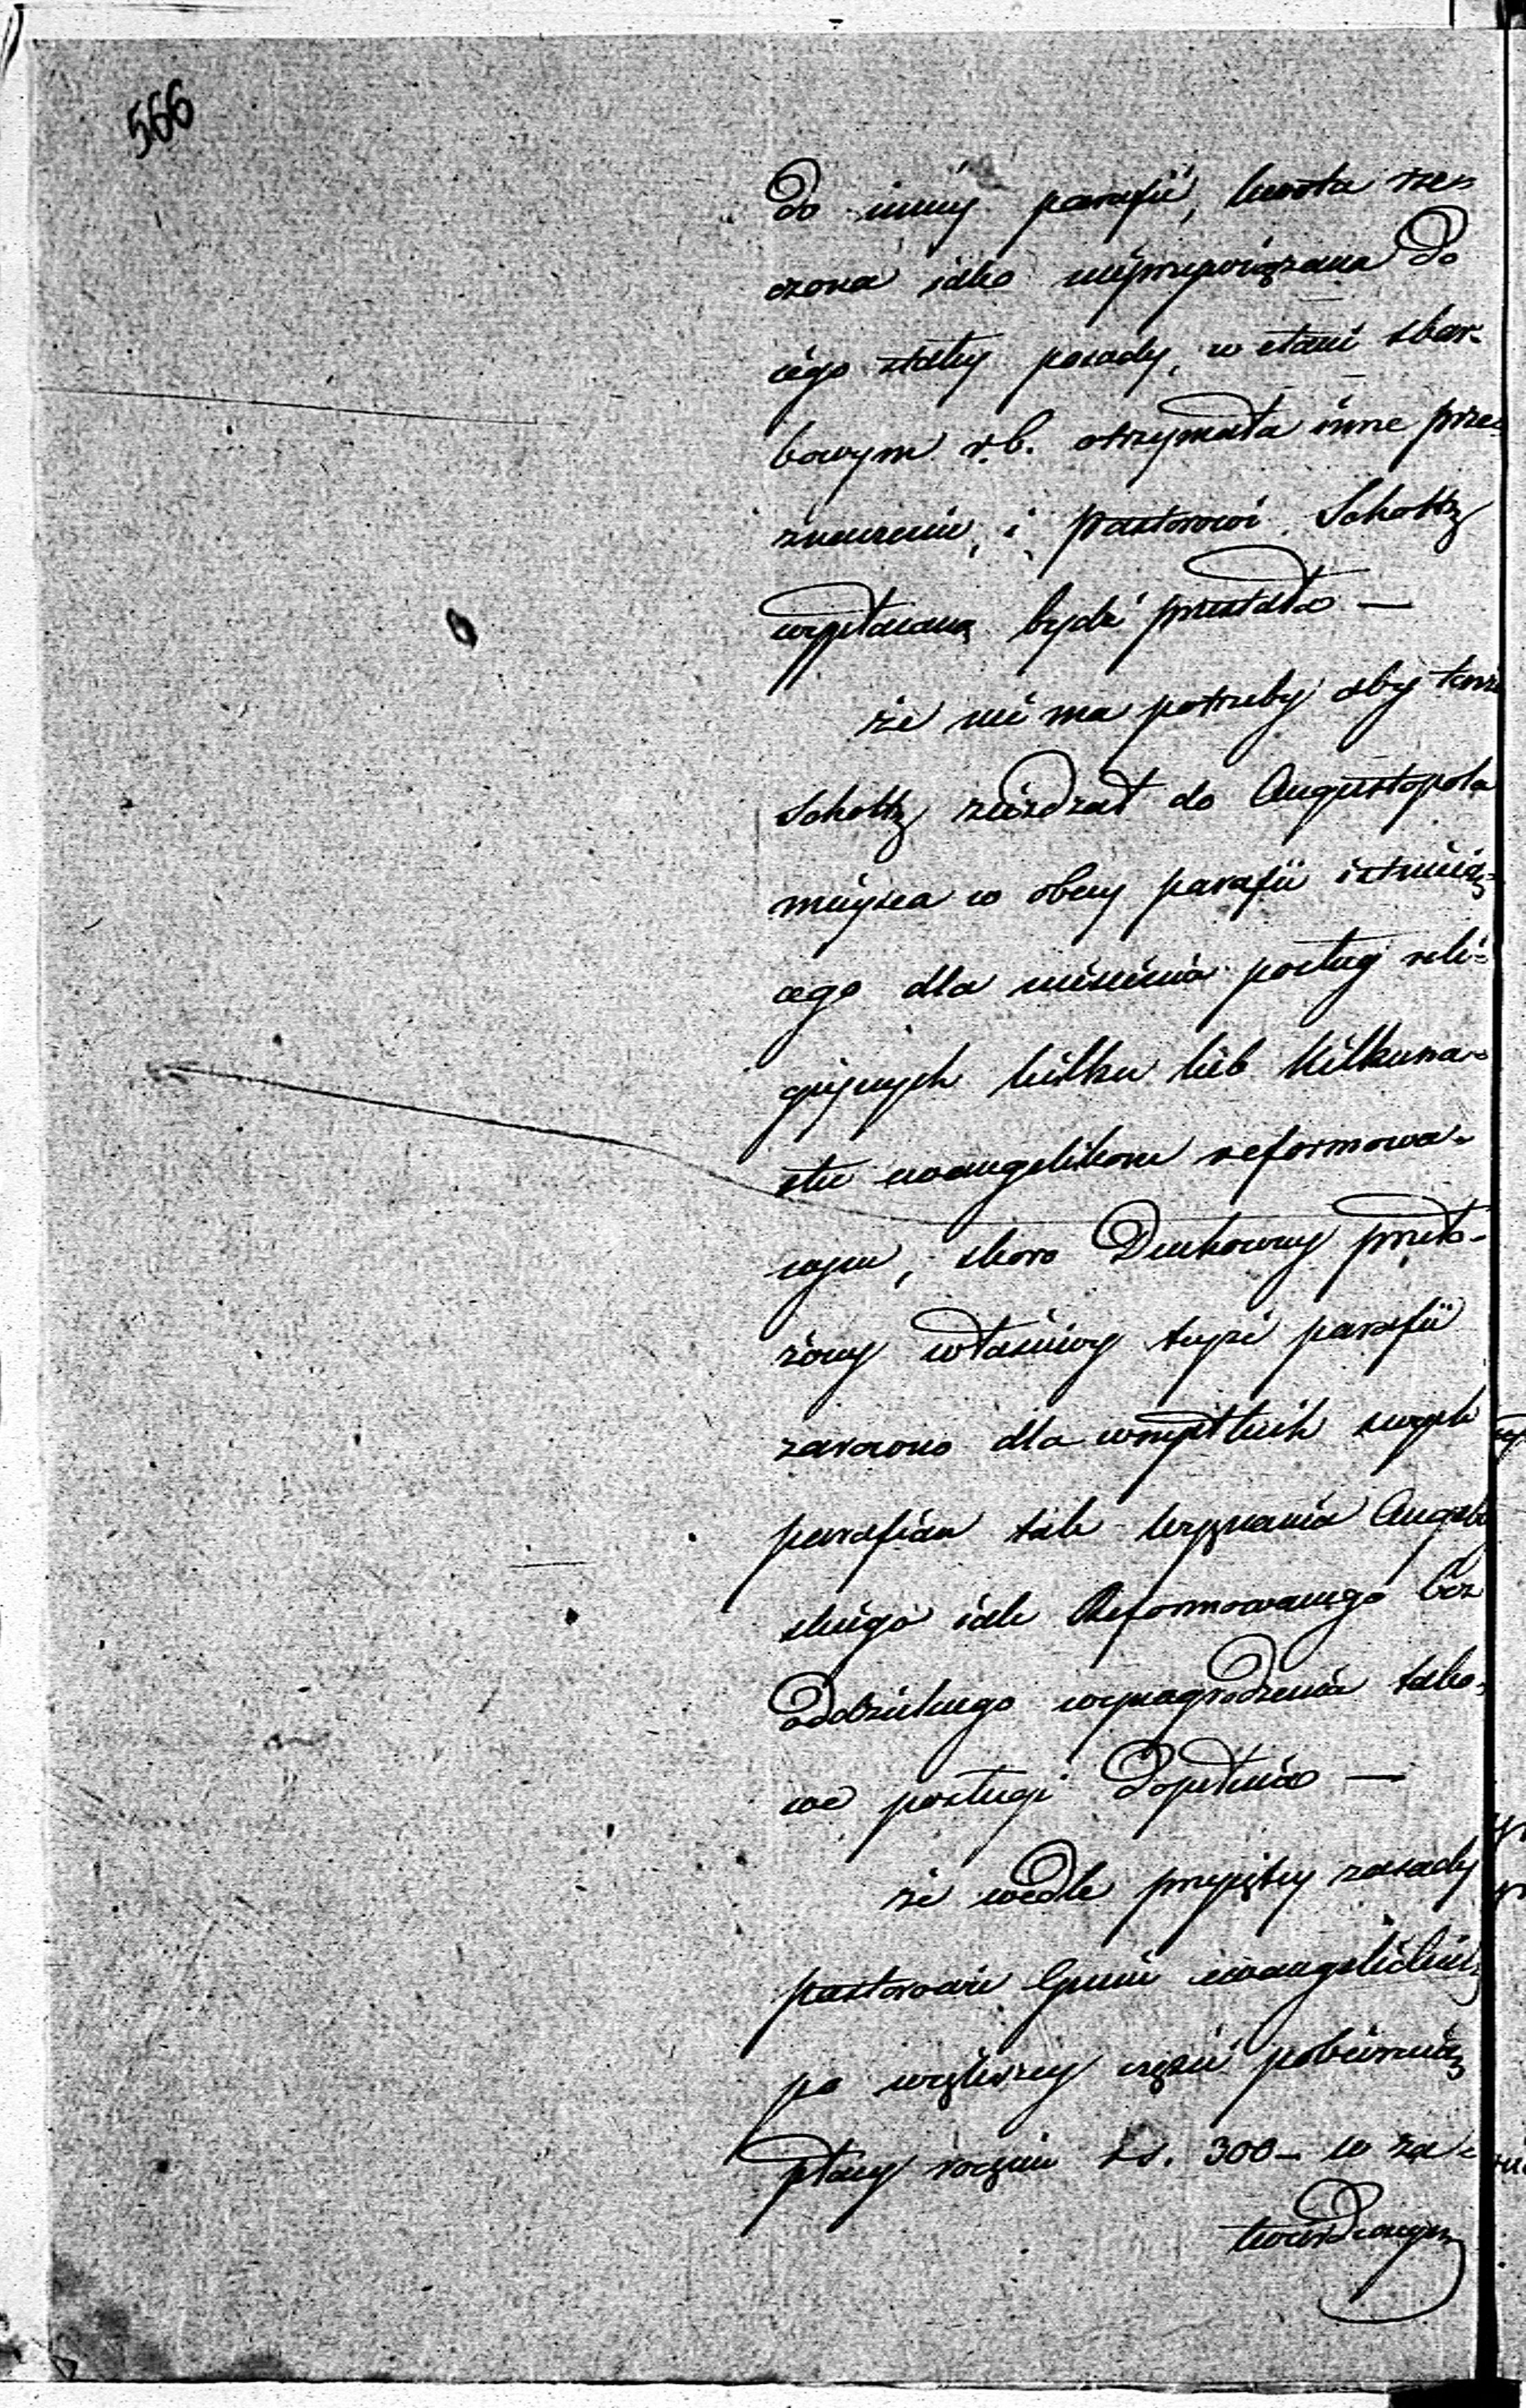 566
do innéy parafii, kwota rze-
czona jako nieprzywiązana do
iégo stałey posady, w etacie skar-
bowym r.b. otrzymała inne prze-
znaczenie, i pastorowi Scholtz
wypłacaną bydź przestała —
że nie ma potrzeby aby tenże
Scholtz zjeżdzał do Augustopola
mieysca w obcey parafii istnieją-
cego dla niesienia posług reli-
gijnych kilku lub kilkuna-
stu ewangelikom reformowa-
nym, skoro Duchowny przeło-
żony właściwy teyże parafii
zarowno dla wszystkich swych
parafian tak wyznania Augsbur
skiego jak Reformowanego bez
oddzielnego wynagrodzenia tako-
we posługi dopełnia —
że wedle przyjętey zasady
pastorowie Gmin ewangelickich
po większey części pobierają
płacy rocznie rs. 300 — w za-
twierdzonym